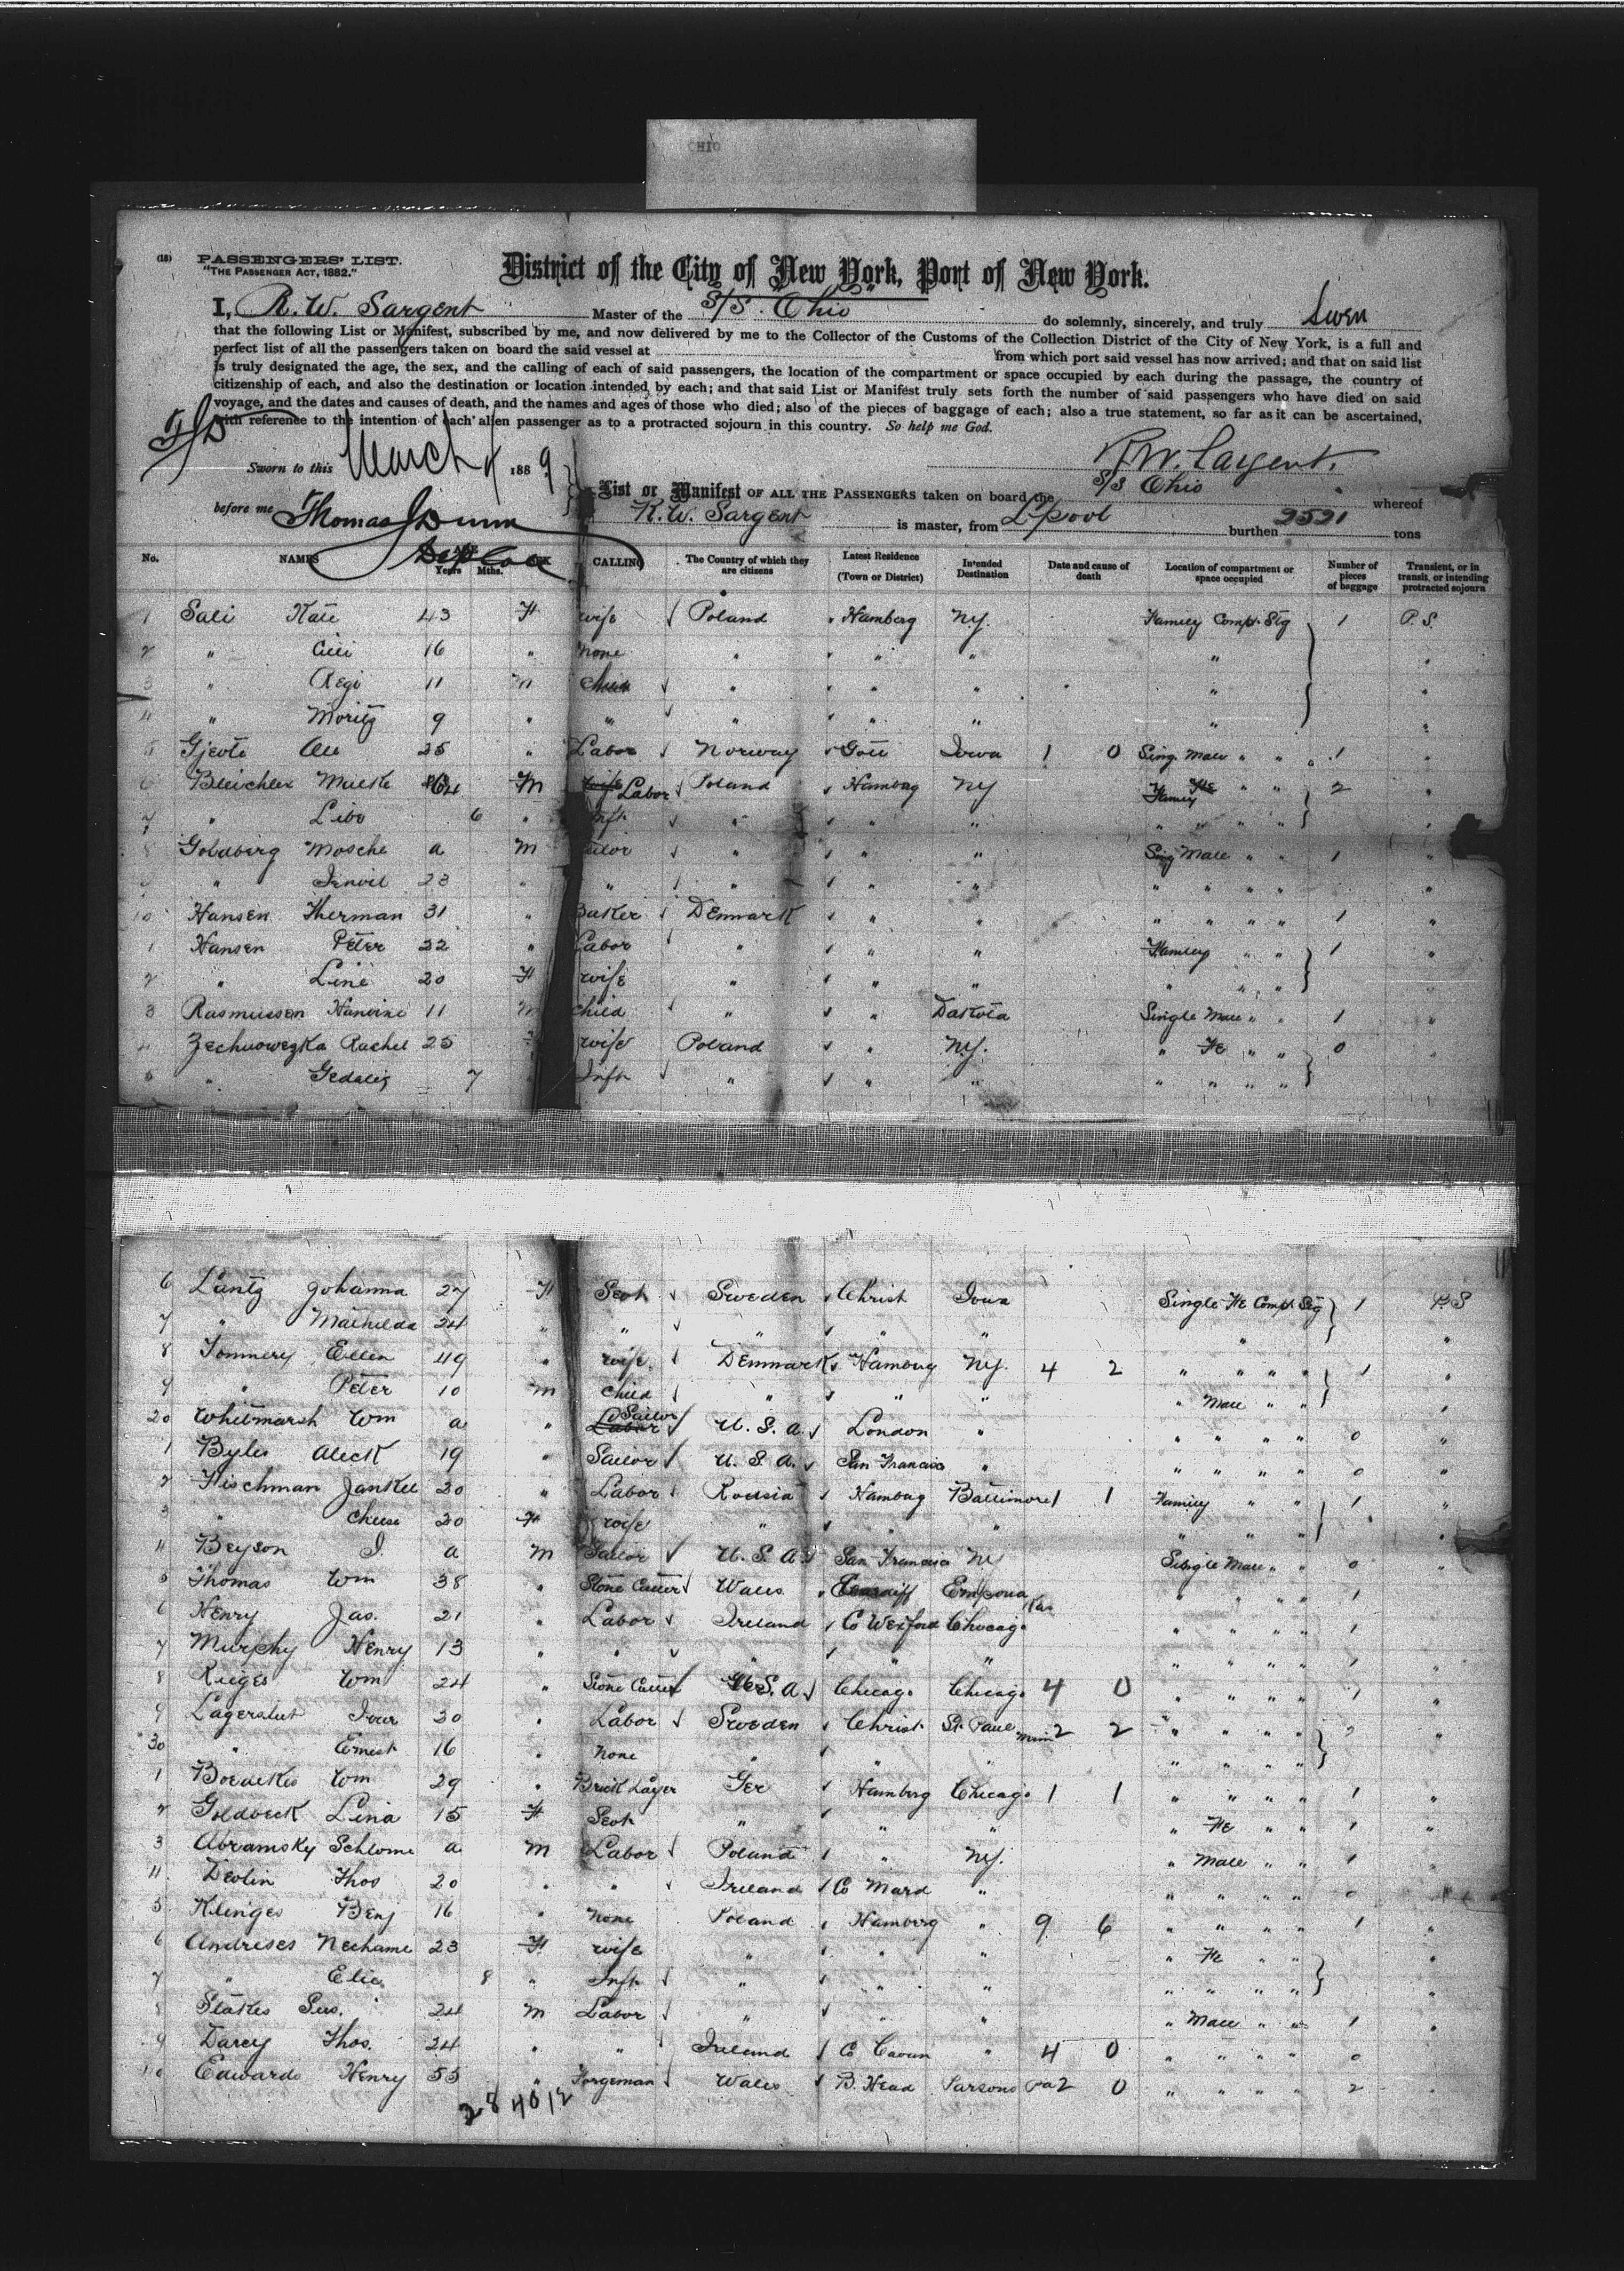 OHIO
(18) PASSENGERS' LIST.
"THE PASSENGER ACT, 1882."
District of the City of New York, Port of New York.
I, R. W. Sargent Master of the S/S. Ohio do solemnly, sincerely, and truly Swear
that the following List or Manifest, subscribed by me, and now delivered by me to the Collector of the Customs of the Collection District of the City of New York, is a full and
perfect list of all the passengers taken on board the said vessel at from which port said vessel has now arrived; and that on said list
is truly designated the age, the sex, and the calling of each of said passengers, the location of the compartment or space occupied by each during the passage, the country of
citizenship of each, and also the destination or location intended by each; and that said List or Manifest truly sets forth the number of said passengers who have died on said
voyage, and the dates and causes of death, and the names and ages of those who died; also of the pieces of baggage of each; also a true statement, so far as it can be ascertained,
with reference to the intention of each alien passenger as to a protracted sojourn in this country. So help me God.
Sworn to this March 4 1889
R. W. Sargent.
before me Thomas J Dunn
List or Manifest OF ALL THE PASSENGERS taken on board the S/S Ohio whereof
R. W. Sargent is master, from L'pool burthen 2521 tons
No. NAMES AGE Years Mths. SEX CALLING The Country of which they are citizens Latest Residence (Town or District) Intended Destination Date and cause of death Location of compartment or space occupied Number of pieces of baggage Transient, or in transit, or intending protracted sojourn
1 Sali Kate 43 F wife Poland Hamberg N.Y. Family Compt. Stg 1 P.S.
2 " 16 " None " " " " "
3 " Regi 11 m child " " " " "
4 " Moritz 9 " " " " " " "
5 Gjeote 25 " Labor Norway Gote Iowa 1 0 Sing. Male " " 1 "
6 Bleichler 64 M Labor Poland Hambag NY Family " " 2 "
7 " Libe 6 " Inft " " " " " " " "
8 Goldberg Mosche a M Tailor " " " Sing Male " " 1 "
9 " 23 " " " " " " " " " "
10 Hansen Herman 31 " Baker Denmark " " " " " " 1 "
1 Hansen Peter 22 " Labor " " " Family " " 1 "
2 " Line 20 F wife " " " " " "
3 Rasmussen 11 m child " " Dakota Single Male " " 1 "
4 Zechnowezka Rachel 25 F wife Poland " N.Y. " Fe " " 0 "
5 " 7 " Inft " " " " " " " "
6 Lantz Johanna 27 F Seot Sweden Christ Iowa Single Fe Compt Stg 1 P.S
7 " Mathilda 24 " " " " " " "
8 Tommery Ellen 49 " wife Denmark Hamburg NY. 4 2 " " " " 1 "
9 " Peter 10 m child " " " " Male " " "
20 Whitmarsh Wm a " Sailor U.S.A. London " " " " " 0 "
1 Byles Aleck 19 " Sailor U.S.A. San Francisco " " " " " 0 "
2 Fischman Jankel 20 " Labor Russia Hambug Baltimore 1 1 Family " " 1 "
3 " 20 F wife " " " " " " "
4 Beyson J. a m Sailor U.S.A. San Francisco NY Single Male " " 0 "
5 Thomas Wm 38 " Stone Cutter Wales Cardiff Emporia Kas " " " " 1
6 Henry Jas. 21 " Labor Ireland Co Wexford Chicago " " " " 1
7 Murphy Henry 13 " " " " " " " " " 1 "
8 Rieges Wm 24 " Stone Cutter U.S.A. Chicago Chicago 4 0 " " " " 1 "
9 30 " Labor Sweden Christ St. Paul Minn 2 2 " " " " 2 "
30 " Ernest 16 " None " " " " " " "
1 Boedekes Wm 29 " Brick Layer Ger Hamberg Chicago 1 1 " " " " 1 "
2 Goldbeck Lina 15 F Seot " " " " Fe " " 1 "
3 Abramsky Schlome a m Labor Poland " NY. " Male " " 1 "
4 Devlin Thos 20 " " Ireland Co " " " " " 0 "
5 Klinges Benj 16 " None Poland Hamberg " 9 6 " " " " 1 "
6 Andrises Nechame 23 F wife " " " " Fe " " "
7 " Elie 8 " Inft " " " " " " " "
8 24 m Labor " " " " Male " " 1 "
9 Darcy Thos. 24 " " Ireland Co Cavan " 4 0 " " " " 0
40 Edwards Henry 55 " Forgeman Wales B. Head Parsons Pa 2 0 " " " " 2
28 40 12